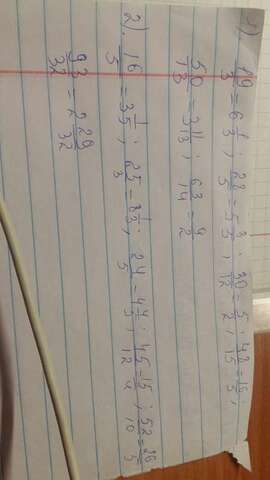 1) 19/3 = 6 1/3; 28/5 = 5 3/5; 30/12 = 5/2; 48/15 = 16/5;
50/13 = 3 11/13; 63/14 = 9/2
2). 16/5 = 3 1/5; 25/3 = 8 1/3; 24/5 = 4 4/5; 45/12 = 15/4; 52/10 = 26/5
93/32 = 2 29/32